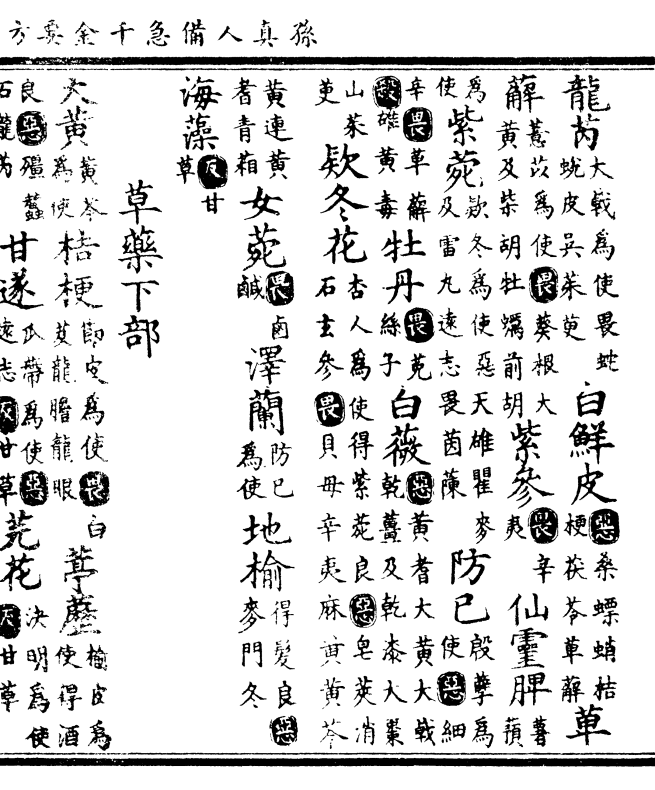 孫真人備急千金要方
龍芮大戟爲使畏蛇蛻皮吳茱萸白鮮皮惡桑螵蛸桔梗茯苓草薢草
薢薏苡爲使畏葵根大黃及柴胡牡蠣前胡紫參畏辛夷仙靈脾薯蕷
爲使紫菀欵冬爲使惡天雄瞿麥及雷丸遠志畏茵蔯防己殷孽爲使惡細
辛畏草薢殺雄黃毒牡丹畏菟絲子白薇惡黃耆大黃大戟乾薑及乾漆大棗
山茱萸欵冬花杏人爲使得紫菀良惡皂莢消石玄參畏貝母辛夷麻黃黃芩
黃連黃耆青葙女菀畏鹵鹹澤蘭防己爲使地榆得髮良惡麥門冬
海藻反甘草
草藥下部
大黃黃芩爲使桔梗節皮爲使畏白芨龍膽龍眼葶藶榆皮爲使得酒
良惡殭蠶石龍芮甘遂瓜蔕爲使惡遠志反甘草芫花決明爲使反甘草